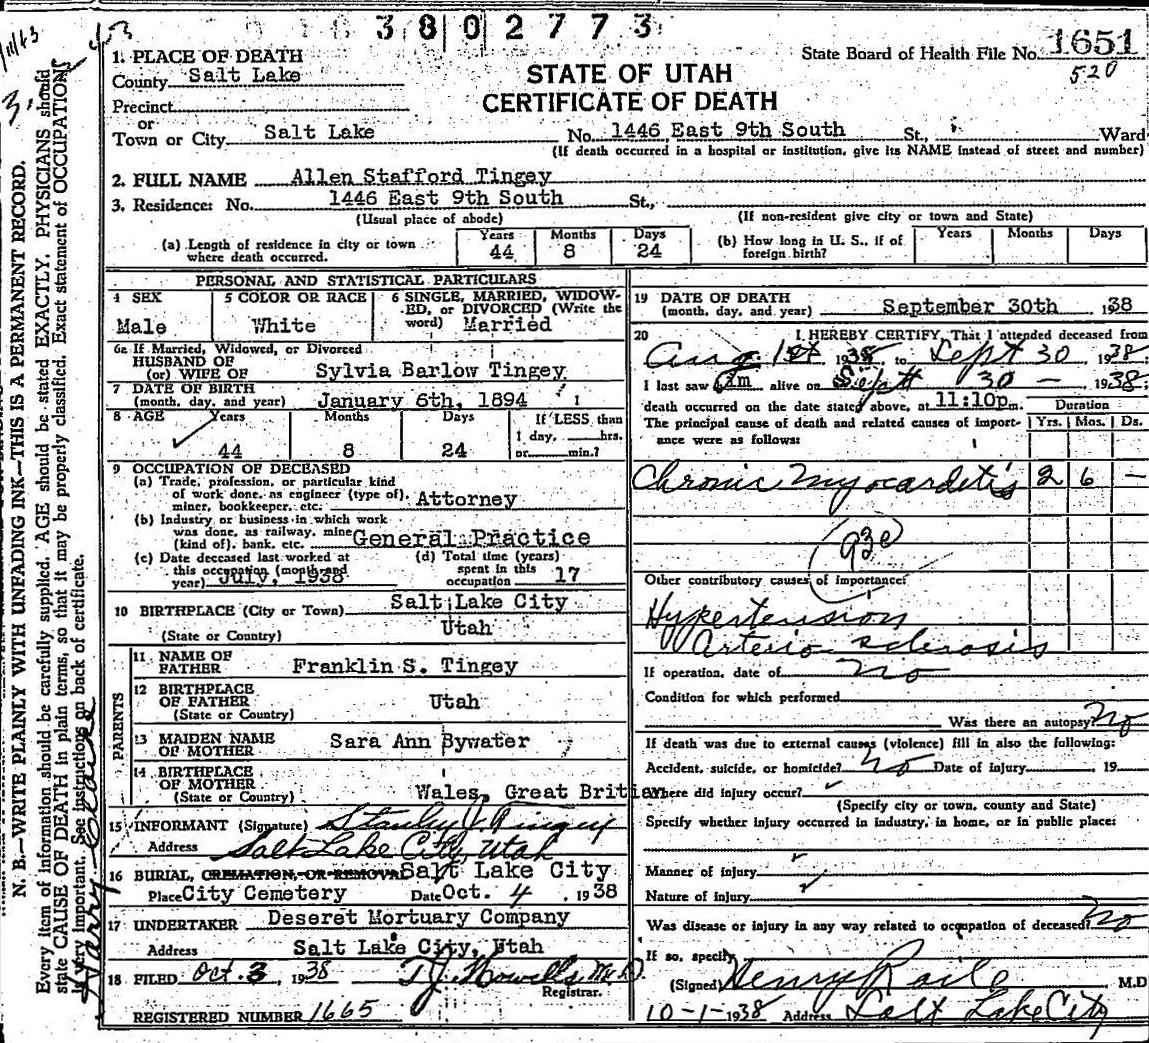 3802773
State Board of Health File No. 1651
520
1. PLACE OF DEATH
County Salt Lake
STATE OF UTAH
CERTIFICATE OF DEATH
Precinct
or
Town or City Salt Lake No. 1446 East 9th South St., Ward
(If death occurred in a hospital or institution, give its NAME instead of street and number)
2. FULL NAME Allen Stafford Tingey
3. Residence: No. 1446 East 9th South St.,
(Usual place of abode) (If non-resident give city or town and State)
(a) Length of residence in city or town where death occurred. Years 44 Months 8 Days 24 (b) How long in U. S., if of foreign birth? Years Months Days
PERSONAL AND STATISTICAL PARTICULARS
4 SEX Male
5 COLOR OR RACE White
6 SINGLE, MARRIED, WIDOW-ED, or DIVORCED (Write the word) Married
6a If Married, Widowed, or Divorced
HUSBAND OF
(or) WIFE OF Sylvia Barlow Tingey
7 DATE OF BIRTH
(month, day, and year) January 6th, 1894
8 AGE Years 44 Months 8 Days 24 If LESS than 1 day, hrs. or min.?
9 OCCUPATION OF DECEASED
(a) Trade, profession, or particular kind
of work done, as engineer (type of),
miner, bookkeeper, etc. Attorney
(b) Industry or business in which work
was done, as railway, mine
(kind of), bank, etc. General Practice
(c) Date deceased last worked at
this occupation (month and
year) July, 1938
(d) Total time (years)
spent in this
occupation 17
10 BIRTHPLACE (City or Town) Salt Lake City
(State or Country) Utah
PARENTS
11 NAME OF
FATHER Franklin S. Tingey
12 BIRTHPLACE
OF FATHER Utah
(State or Country)
13 MAIDEN NAME
OF MOTHER Sara Ann Bywater
14 BIRTHPLACE
OF MOTHER
(State or Country) Wales, Great Britian
15 INFORMANT (Signature) Stanley J. Tingey
Address Salt Lake City, Utah
16 BURIAL, CREMATION, OR REMOVAL Salt Lake City
Place City Cemetery Date Oct. 4, 1938
17 UNDERTAKER Deseret Mortuary Company
Address Salt Lake City, Utah
18 FILED Oct. 3, 1938 T.J. Howells M.D.
Registrar.
REGISTERED NUMBER 1665
19 DATE OF DEATH
(month, day, and year) September 30th 1938
20 I HEREBY CERTIFY, That I attended deceased from
Aug. 1st 1938 to Sept 30 1938
I last saw him alive on Sept 30 - 1938;
death occurred on the date stated above, at 11:10p m.
The principal cause of death and related causes of import-ance were as follows: Duration Yrs. Mos. Ds.
Chronic Myocardetis 2 6 -
93c
Other contributory causes of importance:
Hypertension
Arterio sclerosis
If operation, date of No
Condition for which performed
Was there an autopsy? No
If death was due to external causes (violence) fill in also the following:
Accident, suicide, or homicide? No Date of injury 19
Where did injury occur?
(Specify city or town, county and State)
Specify whether injury occurred in industry, in home, or in public place:
Manner of injury
Nature of injury
Was disease or injury in any way related to occupation of deceased? No
If so, specify
(Signed) Henry Raile M.D
10-1-1938 Address Salt Lake City
N. B.—WRITE PLAINLY WITH UNFADING INK—THIS IS A PERMANENT RECORD.
Every item of information should be carefully supplied. AGE should be stated EXACTLY. PHYSICIANS should
state CAUSE OF DEATH in plain terms, so that it may be properly classified. Exact statement of OCCUPATION
is very important. See instructions on back of certificate.